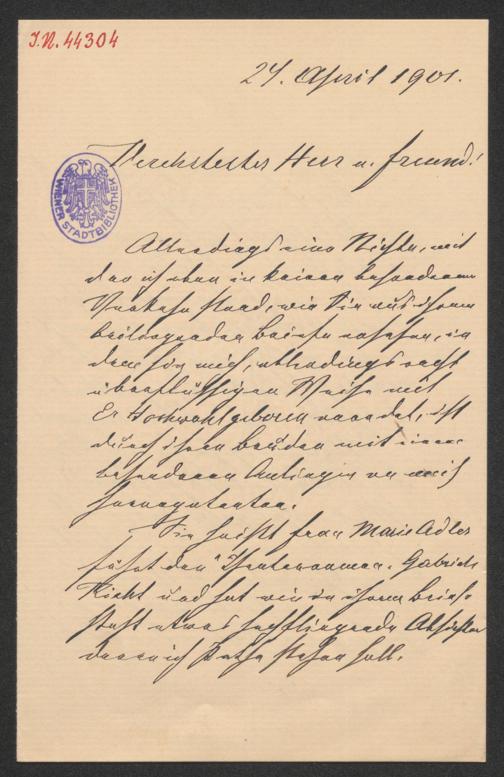 I.N. 44304
24. April 1901.
WIENER STADTBIBLIOTHEK
Verehrtester Herr u. Freund!
Allerdings eine Nichte, mit
der ich eben in keinem besonderen
Verkehr stand, wie Sie aus ihrem
beiliegenden Briefe ersehen, in
dem sie mich, allerdings recht
überflüssigen Weise mit
Er Hochwohlgeboren anredet, ist
durch ihren mit einem
besonderen Anliegen an mich
herangetreten.
Sie heißt Frau Marie Adler
führt den Theaternamen Gabriele
Richt und hat wie in ihrem Briefe
steht etwas Absichten
denen ich Pathe stehen soll.